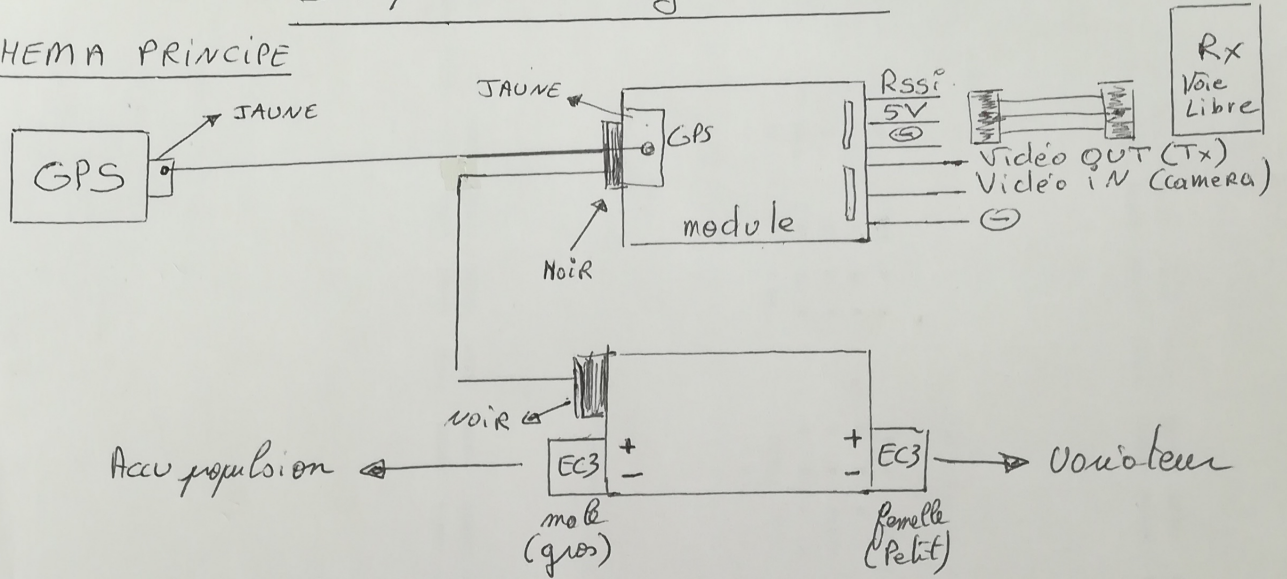 HEMA PRINCIPE
JAUNE
GPS
JAUNE
GPS
module
NOIR
RSSi
5V
⊖
Vidéo OUT (Tx)
Vidéo iN (camera)
⊖
Rx
Voie
Libre
NOIR
Accu propulsion
EC3
+
−
+
−
EC3
variateur
male
(gros)
femelle
(Petit)